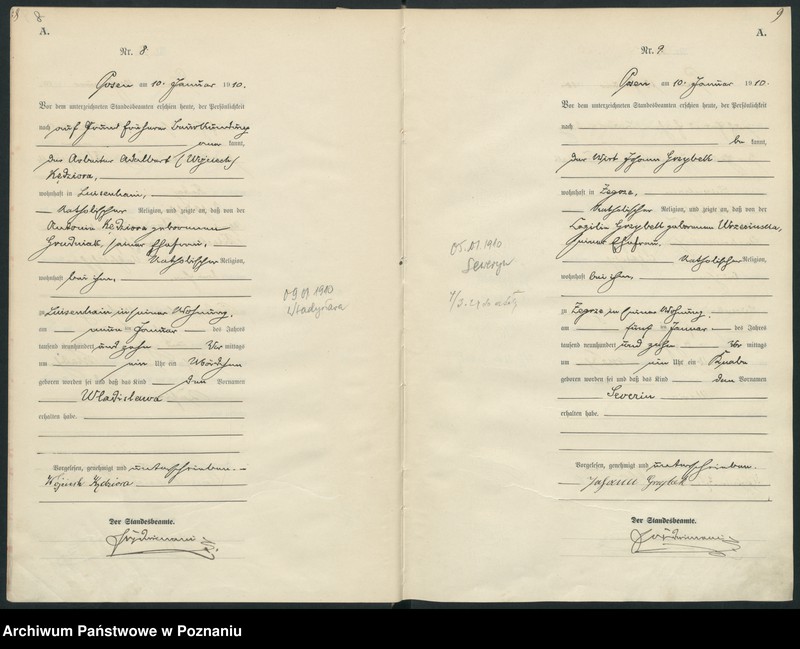 8
A.
Nr. 8
Posen am 10. Januar 1910.
Vor dem unterzeichneten Standesbeamten erschien heute, der Persönlichkeit
nach auf Grund früherer Beurkundung
kannt,
der Arbeiter Adalbert (Wojciech)
Kędziora,
wohnhaft in Luisenhain,
katholischer Religion, und zeigte an, daß von der
Antonia Kędziora geborenen
Grudniak, seiner Ehefrau,
katholischer Religion,
wohnhaft bei ihm,
zu Luisenhain in seiner Wohnung,
am neun Januar des Jahres
tausend neunhundert und zehn Vor mittags
um ein Uhr ein Mädchen
geboren worden sei und daß das Kind den Vornamen
Wladislawa
erhalten habe.
Vorgelesen, genehmigt und unterschrieben.
Wojciech Kędziora
Der Standesbeamte.
09 01 1910
Władysława
9
A.
Nr. 9
Posen am 10. Januar 1910.
Vor dem unterzeichneten Standesbeamten erschien heute, der Persönlichkeit
nach
be kannt,
der Wirt Johann Grzybek
wohnhaft in Zegrze,
katholischer Religion, und zeigte an, daß von der
Cäzilie Grzybek geborenen Wrzesinska,
seiner Ehefrau,
katholischer Religion,
wohnhaft bei ihm,
zu Zegrze in seiner Wohnung,
am fünf Januar des Jahres
tausend neunhundert und zehn Vor mittags
um ein Uhr ein Knabe
geboren worden sei und daß das Kind den Vornamen
Severin
erhalten habe.
Vorgelesen, genehmigt und unterschrieben.
Johann Grzybek
Der Standesbeamte.
05.01.1910
Seweryn
Archiwum Państwowe w Poznaniu